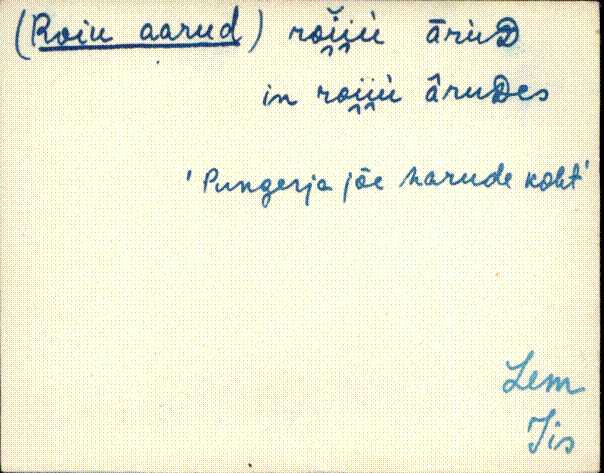 (Roiu aarud) roi̮i̮ù āruD
in roi̮i̮ù âruDes
'Pungerja jõe harude koht'
Lem
Jis